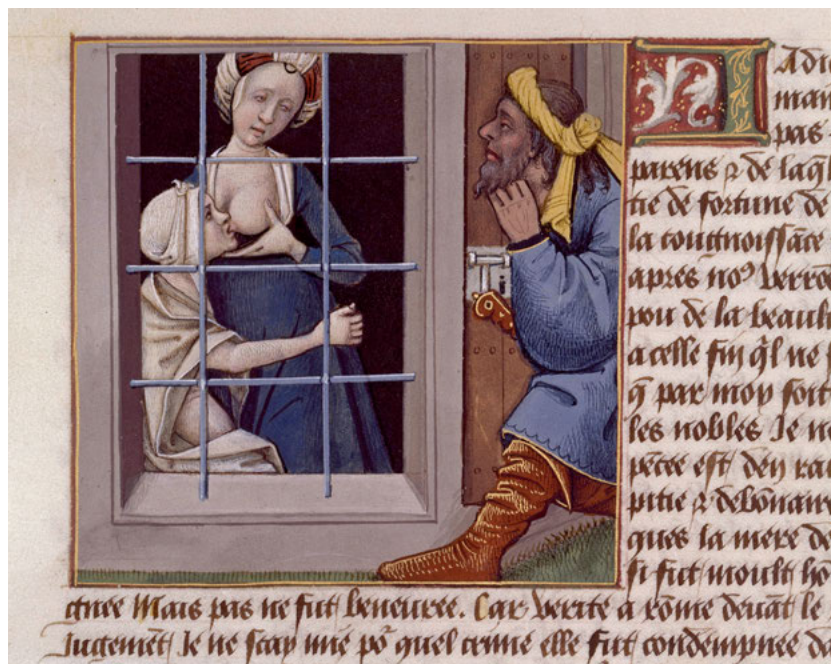 man
pas
parens ⁊ de laq̃l
tie de fortune de
la congnoissāce
apres noꝰ verro
pou de la beaul
a celle fin q̃l ne
q̃ par moy soit
les nobles Je ne
est
pitie ⁊ debōnair
ques la mere de
si fut moult hō
gnee Mais pas ne fut beneuree. Car verite a rōme deuāt le
Jugemēt Je ne scay mie po᷑ quel crime elle fut condempnee de